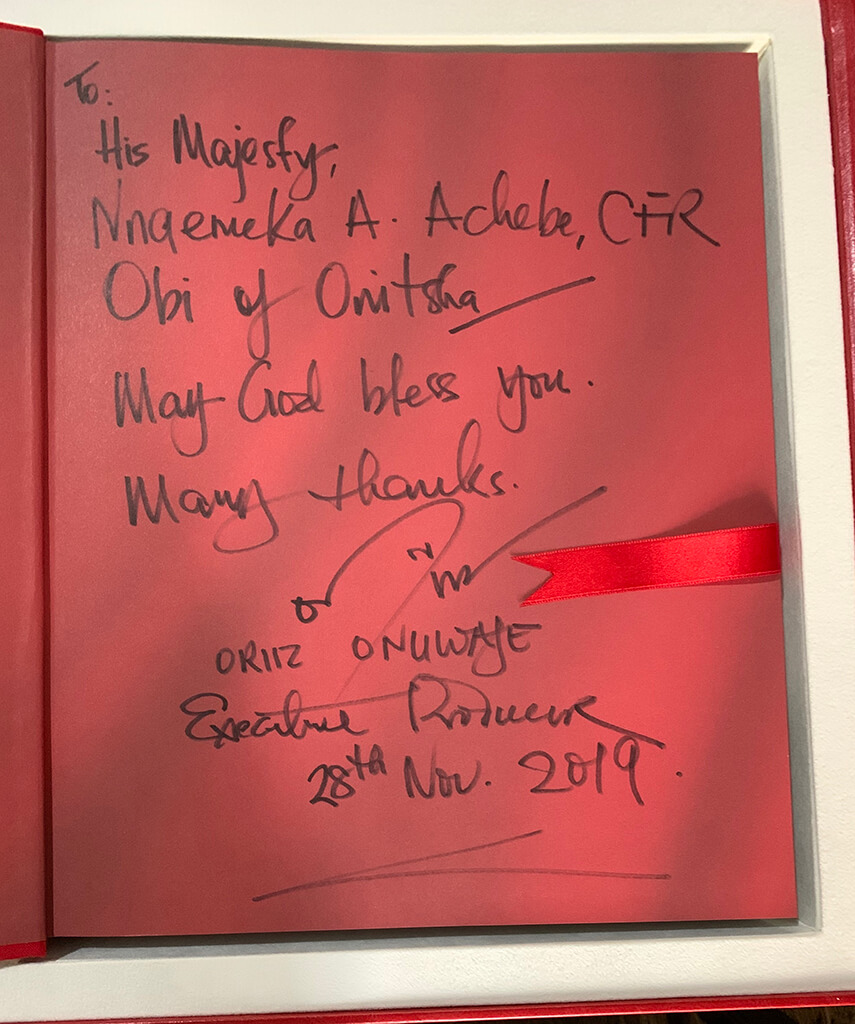 To:
His Majesty,
Nnaemeka A. Achebe, CFR
Obi of Onitsha
May God bless you.
Many thanks.
ORIIZ ONUWAJE
Executive Producer
28th Nov. 2019.